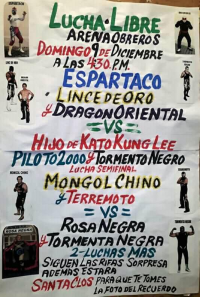 LUCHA LIBRE
ARENA OBREROS
DOMINGO 9 DE DICIEMBRE
A LAS 4:30 P.M.
ESPARTACO
LINCE DE ORO
Y DRAGON ORIENTAL
=VS=
HIJO DE KATO KUNG LEE
PILOTO 2000 Y TORMENTO NEGRO
LUCHA SEMIFINAL
MONGOL CHINO
Y TERREMOTO
=VS=
ROSA NEGRA
Y TORMENTA NEGRA
2-LUCHAS MAS
SIGUEN LAS RIFAS SORPRESA
ADEMAS ESTARA
SANTA CLOS PARA QUE TE TOMES
LA FOTO DEL RECUERDO